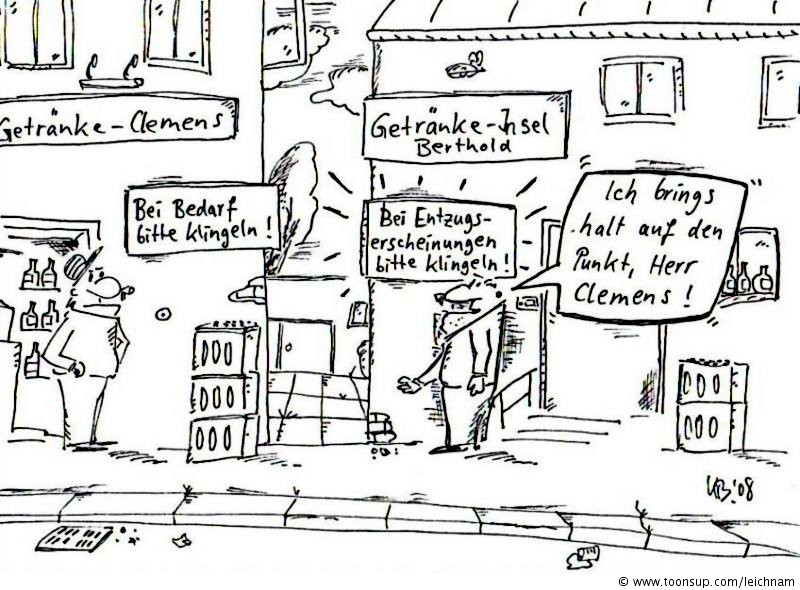 Getränke-Clemens
Bei Bedarf
bitte klingeln!
Getränke-Insel
Berthold
Bei Entzugs-
erscheinungen
bitte klingeln!
Ich brings
halt auf den
Punkt, Herr
Clemens!
KB!'08
© www.toonsup.com/leichnam